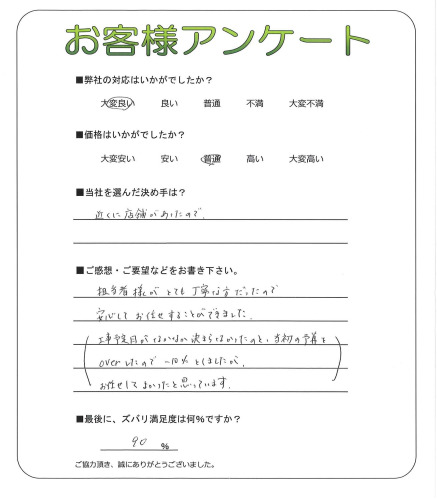 お客様アンケート
■弊社の対応はいかがでしたか？
大変良い 良い 普通 不満 大変不満
■価格はいかがでしたか？
大変安い 安い 普通 高い 大変高い
■当社を選んだ決め手は？
近くに店舗があったので。
■ご感想・ご要望などをお書き下さい。
担当者様がとても丁寧な方だったので
安心してお任せすることができました。
工事予定日がなかなか決まらなかったのと、当初の予算を
overしたので
としましたが、
お任せしてよかったと思っています。
■最後に、ズバリ満足度は何%ですか？
90 %
ご協力頂き、誠にありがとうございました。